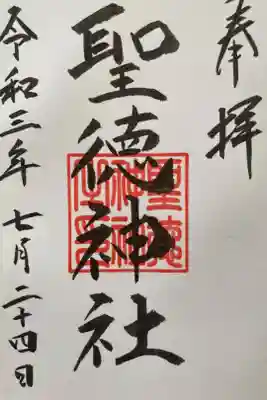 奉拝
聖徳神社
令和三年 七月二十四日